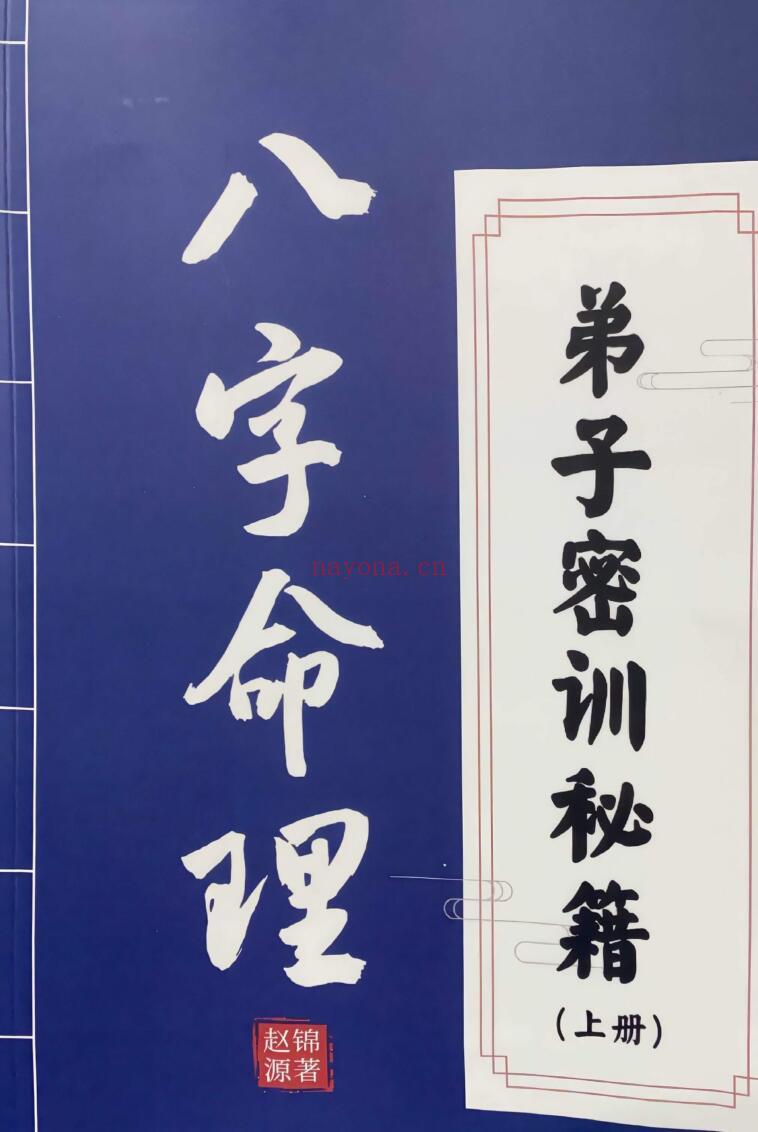 八字命理
弟子密训秘籍
（上册）
赵锦
源著
nayona.cn